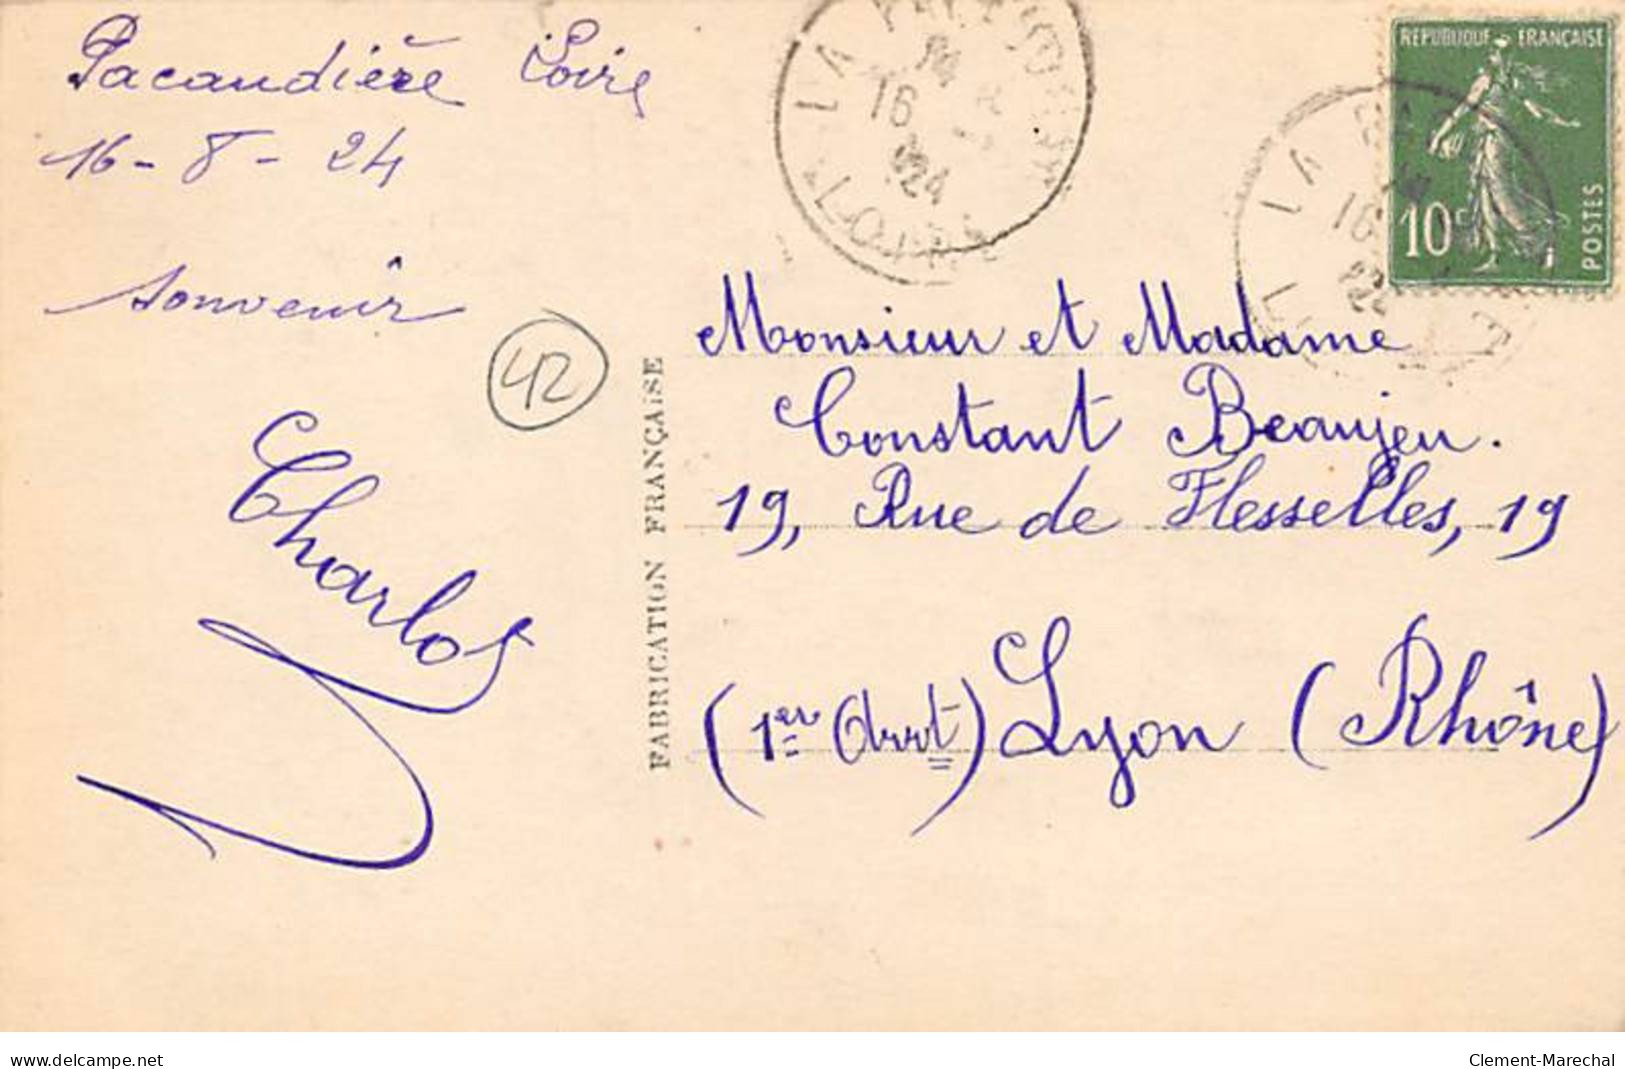 Pacaudière Loire
16-8-24
souvenir
42
Charlos
FABRICATION FRANÇAISE
LA
16
24
LOIRE
REPUBLIQUE FRANÇAISE
10c
POSTES
LA
16
Monsieur et Madame
Constant Beaujeu.
19, Rue de Flesselles, 19
(1er Arrt) Lyon (Rhône)
www.delcampe.net
Clement-Marechal